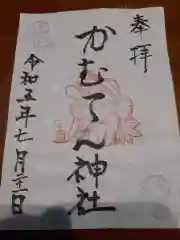 奉拝
かむてん神社
令和五年七月二十二日